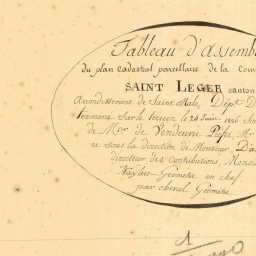 Tableau d'Assemb
du plan cadastral parcellaire de la Com
SAINT LEGER canton
Arrondissement de Saint Malo, Dépt. D
Terminé sur le terrein le 24 Juin 1826 So
de Mr. de Vendeuvre Préfet, Mr
et sous la direction de Monsieur D
directeur des Contributions, Mons
Géomètre en chef
par Géomètre
1